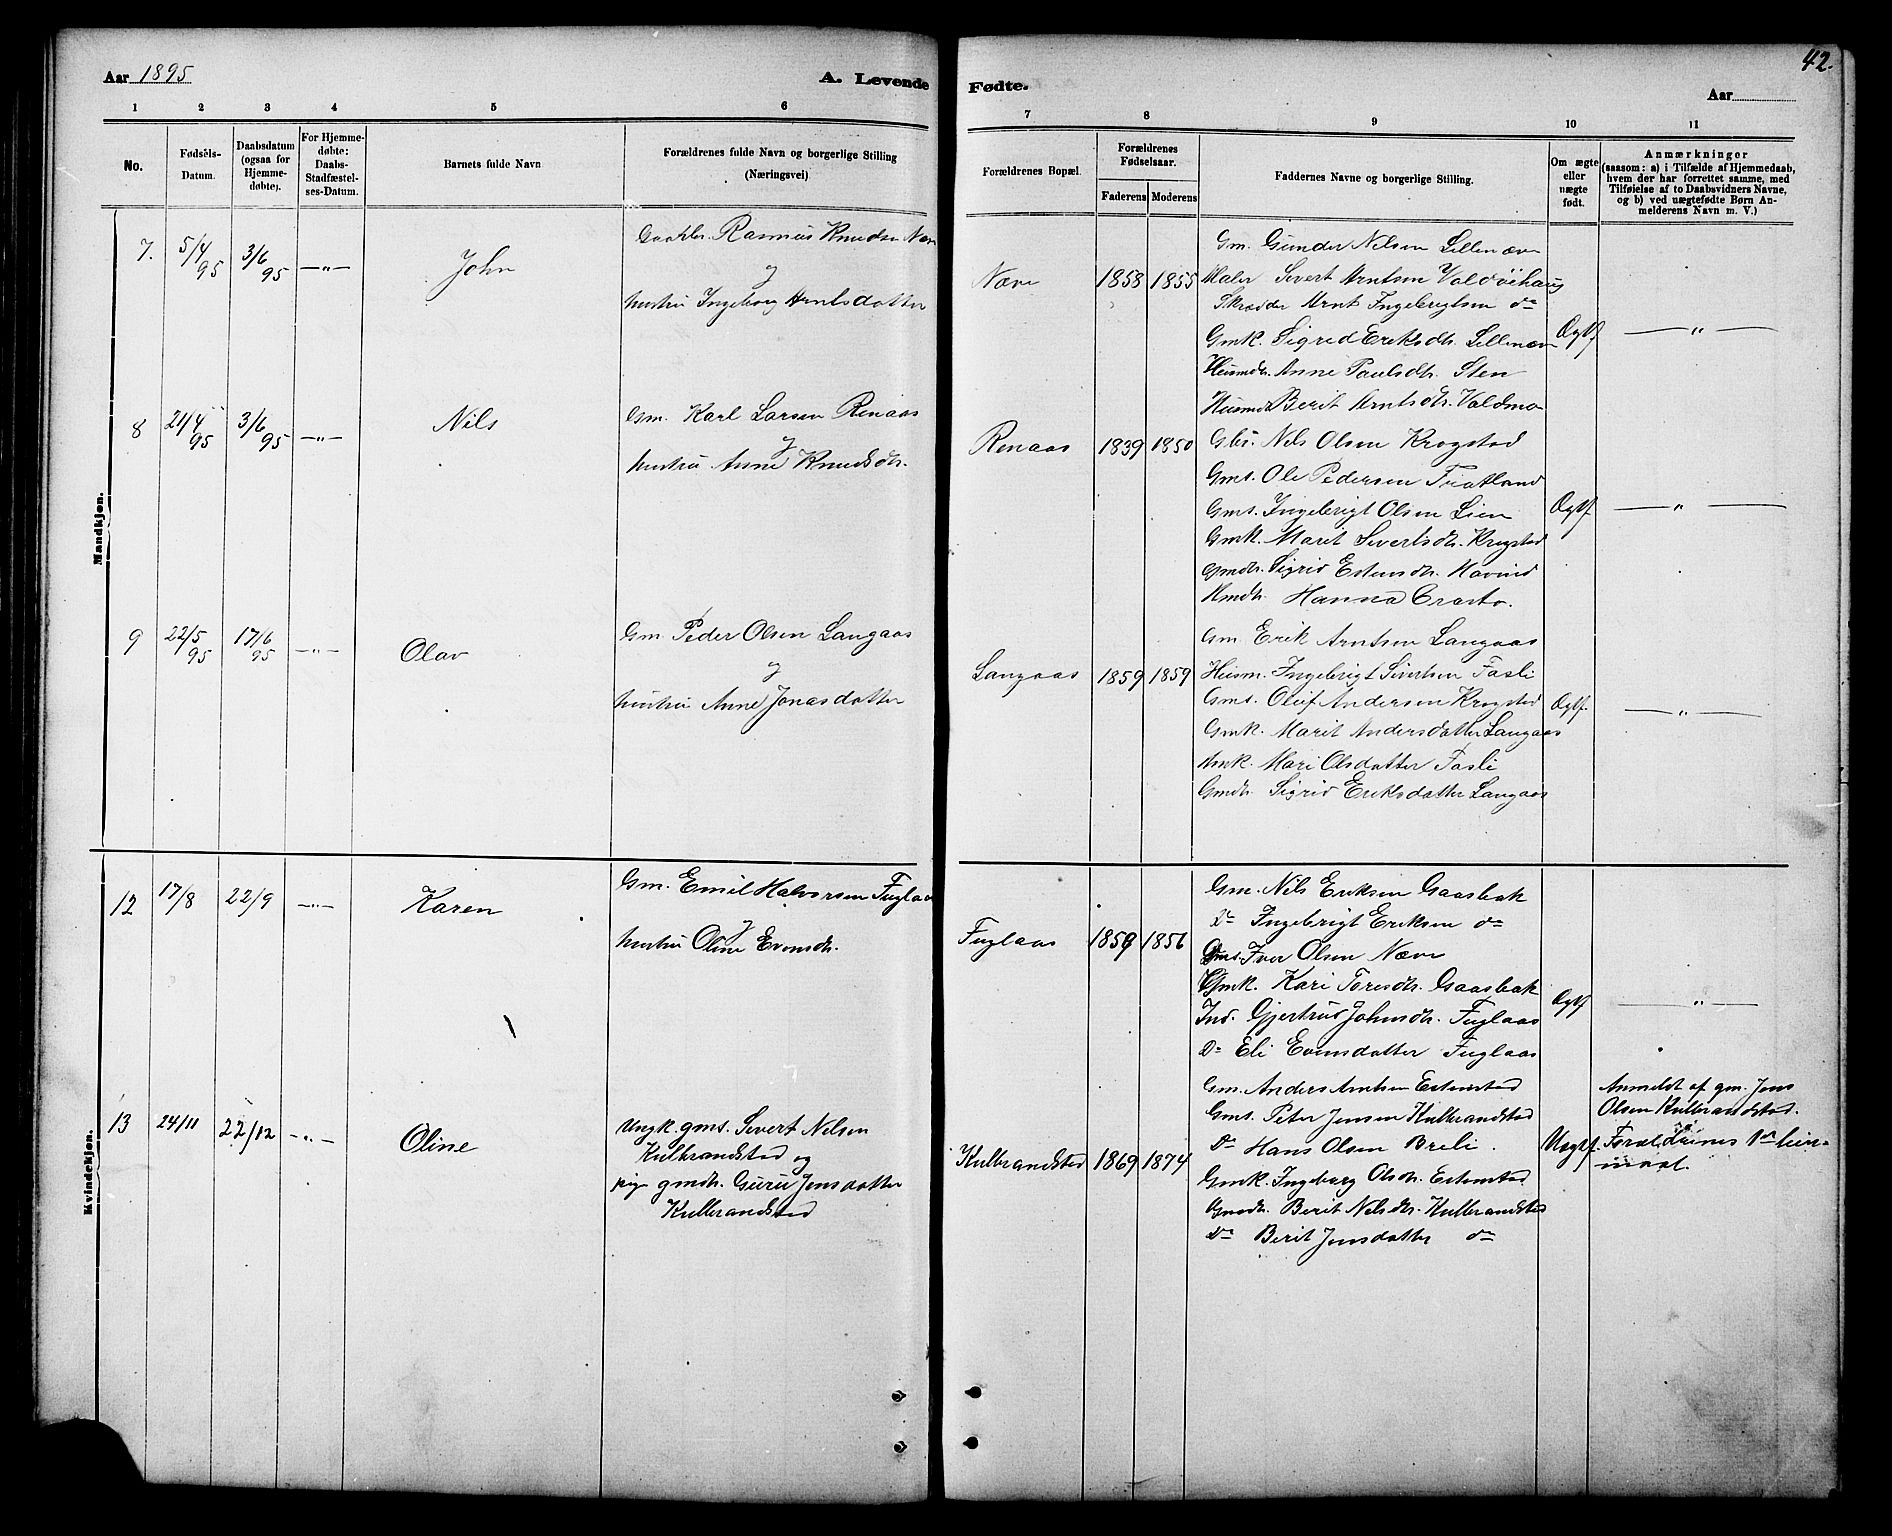 Aar 1895
A. Levende
Fødte.
Aar
42.
1 2 3 4 5 6 7 8 9 10 11
No.
Fødsels-
Datum.
Daabsdatum
(ogsaa for
Hjemme-
døbte).
For Hjemme-
døbte:
Daabs-
Stadfæstel-
ses-Datum.
Barnets fulde Navn
Forældrenes fulde Navn og borgerlige Stilling
(Næringsvei)
Forældrenes Bopæl.
Forældrenes
Fødselsaar.
Faderens
Moderens
Faddernes Navne og borgerlige Stilling.
Om ægte
eller
uægte
født.
Anmærkninger
(saasom: a) i Tilfælde af Hjemmedaab,
hvem der har forrettet samme, med
Tilføielse af to Daabsvidners Navne,
og b) ved uægtefødte Børn An-
melderens Navn m. V.)
Mandkjøn.
7. 5/4 95 3/6 95 —„— John
Rasmus Knudsen Næve
og
hustru Ingeborg Arntsdatter
Næve 1858 1855
Gm. Gunder Nilsen Lillenæve
Maler Sivert Arntsen Valdøihaug
Skrædder Arnt Ingebrigtsen do
Gmk. Sigrid Eriksdtr. Lillenæve
Husmdtr. Anne Paulsdtr. Sten
Berit Arntsdtr. Valdmo
Ægtf. —„—
8 21/4 95 3/6 95 —„— Nils
Gm. Karl Larsen Renaas
og
hustru Anne Knudsdtr.
Renaas 1839 1850
Gbr. Nils Olsen Krogstad
Gms. Ole Pedersen Fratland
Gms. Ingebrigt Olsen Lien
Gmk. Marit Sivertsdtr. Krogstad
Gmdtr. Sigrid Estensdtr. Havind
Hmdtr. Hanna Crasto.
Ægtf. —„—
9 22/5 95 17/6 95 —„— Olav
Gm. Peder Olsen Langaas
og
hustru Anne Jonasdatter
Langaas 1859 1859
Gm Erik Arntsen Langaas
Husm. Ingebrigt Sivertsen Fasli
Gms. Oluf Andersen Krogstad
Gmk. Marit Andersdatter Langaas
Hmk. Mari Olsdatter Fasli
Gmdtr. Sigrid Eriksdatter Langaas
Ægtf. —„—
Kvindekjøn.
12 17/8 22/9 —„— Karen
Gm. Emil Halvorsen Fuglaas
og
hustru Oline Evensdtr.
Fuglaas 1859 1856
Gm. Nils Eriksen Gaasbak
Do Ingebrigt Eriksen do
Gms. Iver Olsen Næve
Gmk. Kari Toresdtr. Gaasbak
Ind. Gjertrud Johnsdtr. Fuglaas
Do Eli Evensdatter Fuglaas
Ægtf —„—
13 24/11 22/12 —„— Oline
Ungk. gms. Sivert Nilsen
Kulbrandstad og
pige gmdtr. Guru Jonsdatter
Kulbrandstad
Kulbrandstad 1869 1874
Gm. Anders Arntsen Estenstad
Gms. Peter Jensen Kulbrandstad
Do Hans Olsen Breli
Gmk. Ingeborg Olsdtr. Estenstad
Gmdtr. Berit Nilsdtr. Kulbrandstad
Do Berit Jonsdatter do
Uægtf.
Anmeldt af gm. Jons
Olsen Kulbrandstad.
Forældrenes 1ste leier-
maal.